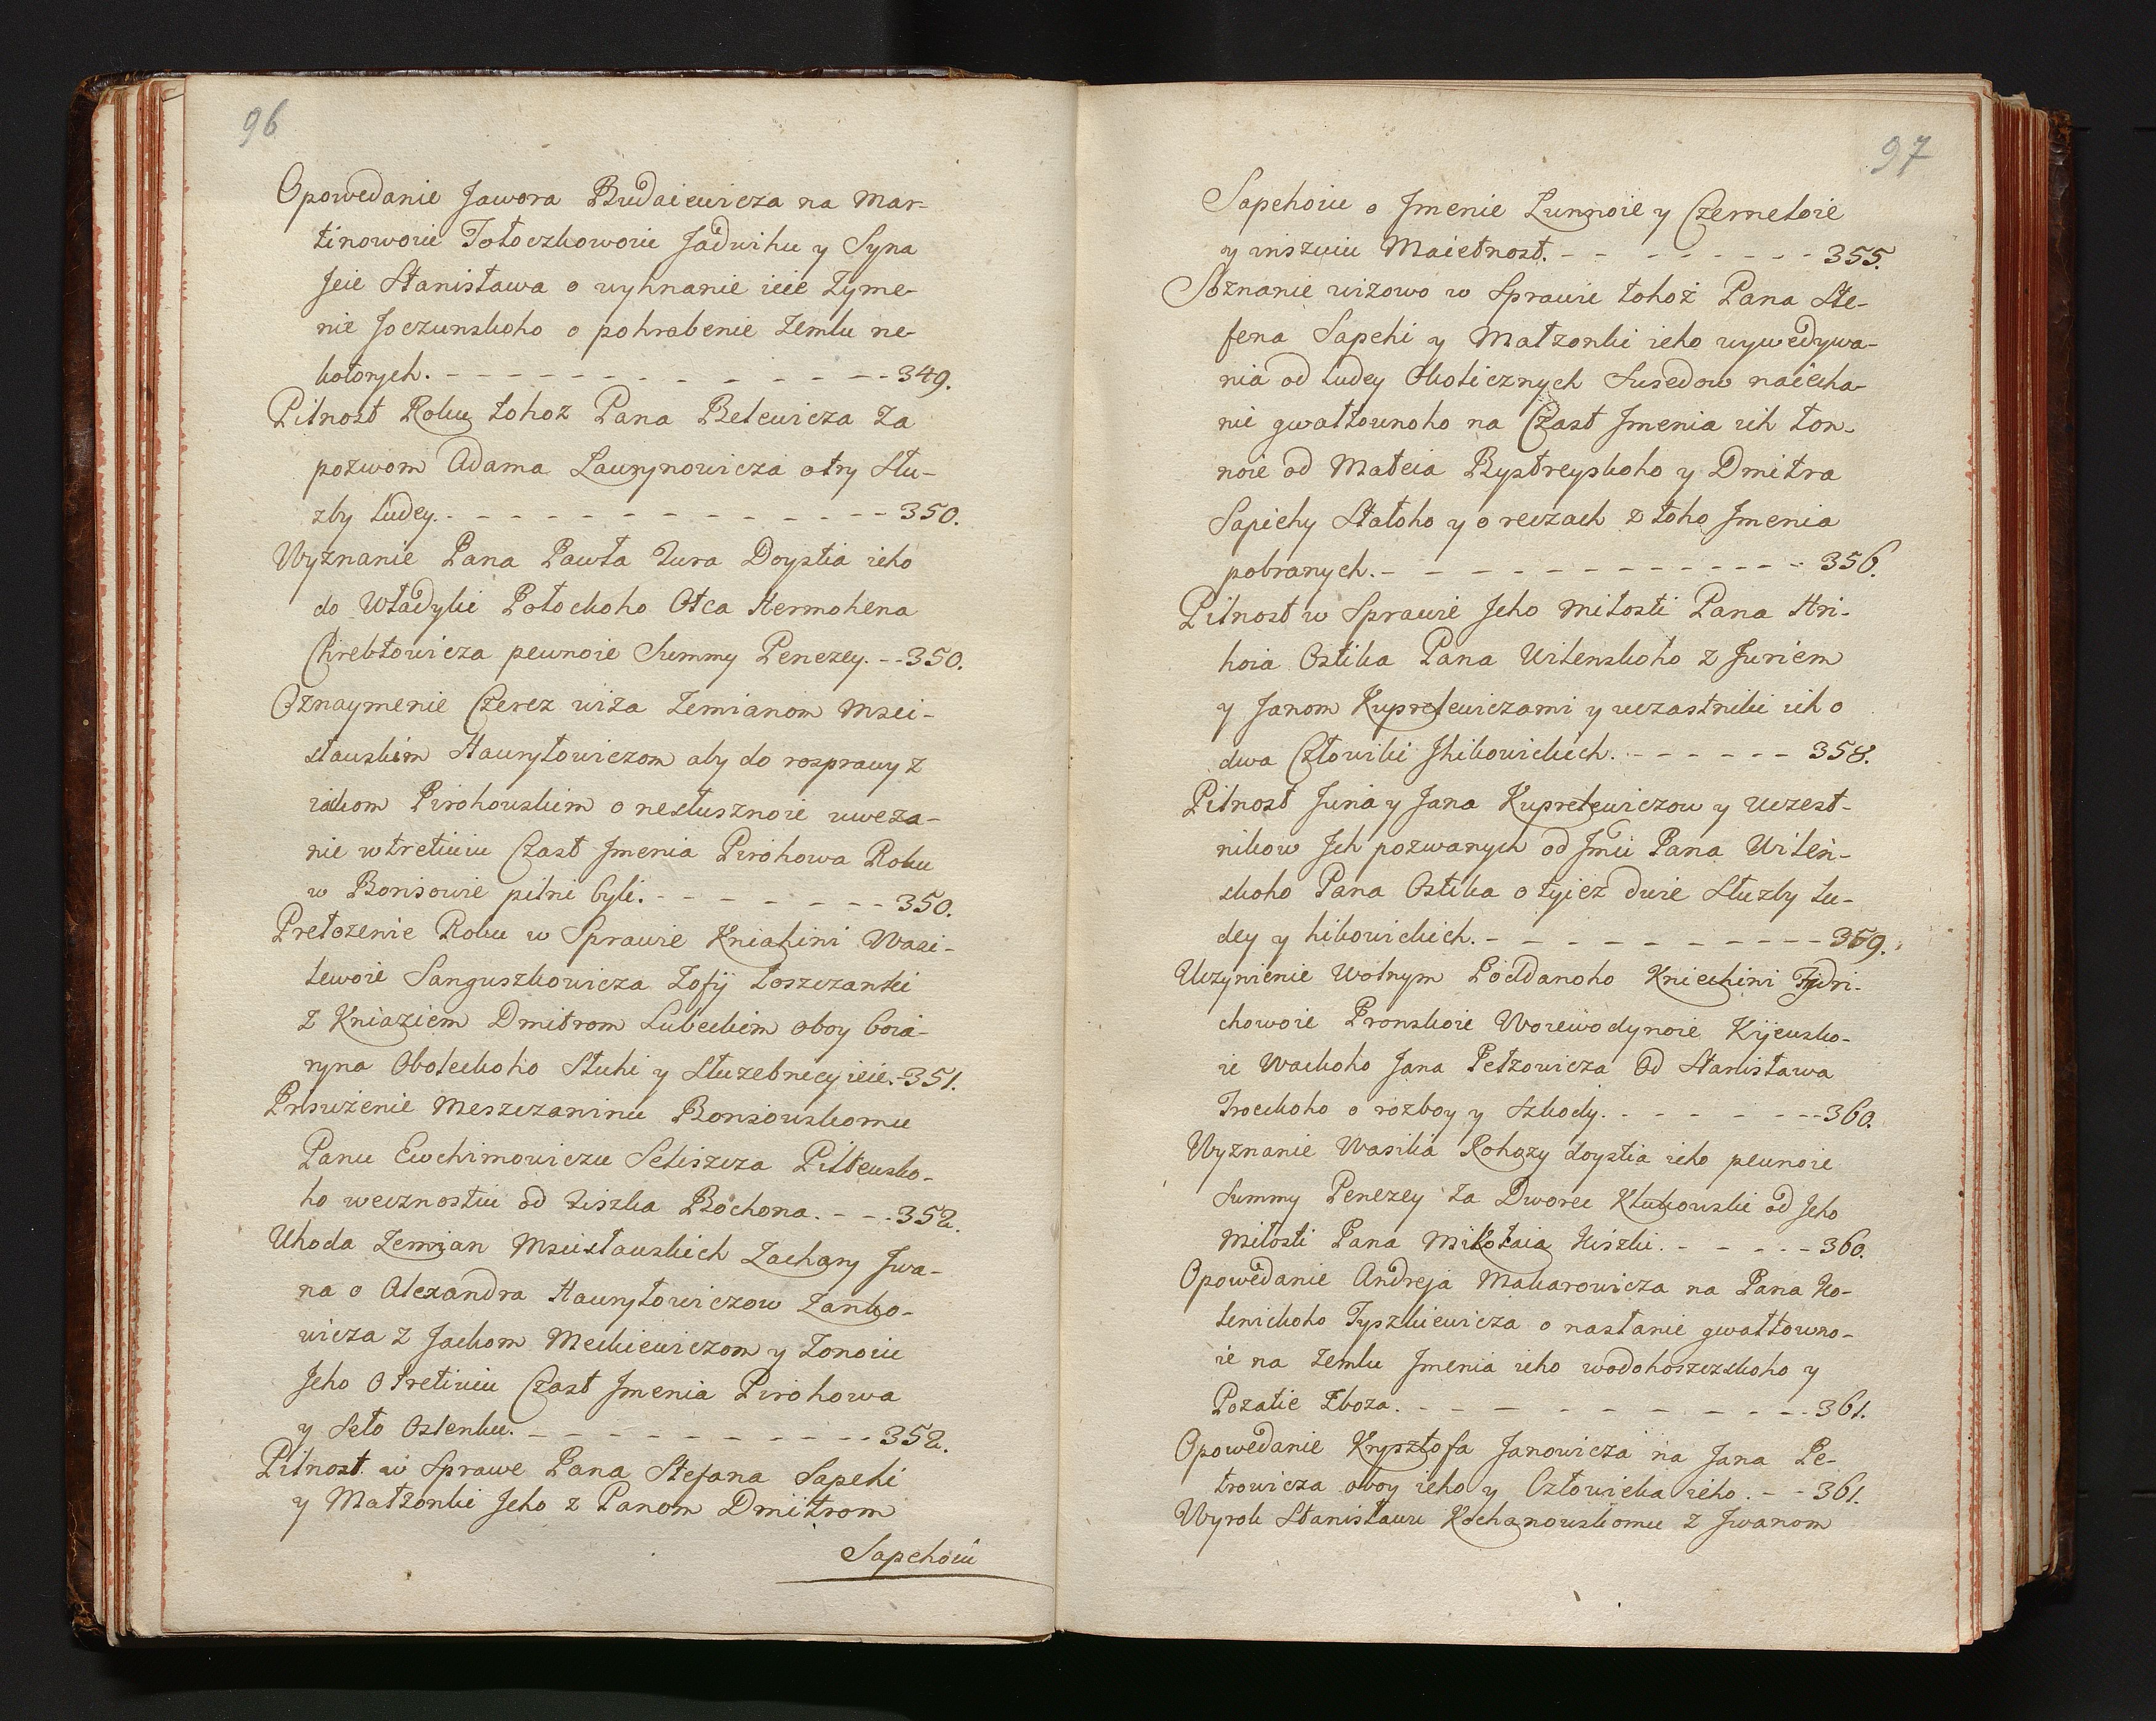 96
Opowedanie Jawora Budaiewicza na Mar-
tinowoie Tołoczkowoie Jadwihu y Syna
Jeie Stanisława o wyhnanie ieie zyme-
nie Joczunskoho o pohrabenie Zemlu ne-
kotorych. - - - - - - - - - - - - 349.
Pilnost Roku tohoż Pana Belewicza za
pozwom Adama Laurynowicza otry Słu-
zby ludey. - - - - - - - - - - - - 350.
Wyznanie Pana Pawła Jura Doystia ieho
do Władyki Połockoho Otca Hermohena
Chrebtowicza pewnoie Summy Penezey. - - 350.
Oznaymenie Czerez wiża Zemianom Msci-
sławskim Hawryłowiczom aby do rosprawy z
iakom Pirohowskim o nesłusznoie uweza-
nie wtretiuiu Czast Jmenia Pirohowa Roku
w Borisowie pilni byli. - - - - - - - 350.
Prełozenie Roku w Sprawie Kniahini Wasi-
lewoie Sanguszkowicza Zofij Łoszczanki
z Kniaziem Dmitrom Lubeckim oboy boia-
ryna Obolekoho Słuhi y Słuzebnicy ieie. - 351.
Prisużenie Meszczaninu Borisowskomu
Panu Ewchimowiczu Seliszcza Pilkewsko-
ho wecznostiu od Ziszka Bochona. - - - 352.
Uhoda Zemian Mscisławskich Zachary Jwa-
na o Alexandra Hawryłowiczow Zanko-
wicza z Jackom Meckiewiczom y Zonoiu
Jeho O tretiuiu Czast Jmenia Pirohowa
y Seło Ostenku. - - - - - - - - - - 352.
Pilnost w Sprawe Pana Stefana Sapehi
y Małżonki Jeho z Panom Dmitrom
Sapehoiu
97
Sapehoiu o Jmenie Łunnoie y Czerneloie
y inszuiu Maietnost. - - - - - - - - 355.
Soznanie wizowo w Sprawie tohoż Pana Ste-
fena Sapehi y Małzonki ieho wywedywa-
nia od ludey Okolicznych Susedow naiecha-
nie gwałtownoho na Czast Jmenia ich Łon-
noie od Mateia Bystreyskoho y Dmitra
Sapiehy Stałoho y o reczach z toho Jmenia
pobranych. - - - - - - - - - - - - 356.
Pilnost w Sprawie Jeho Miłosti Pana Hri-
hoia Ostika Pana Wilenskoho z Juriem
y Janom Kuprelewiczami y uczastniki ich o
dwa Człowiki Jhikowickich. - - - - - - 358.
Pilnost Juria y Jana Kuprelewiczow y Uczest-
nikow Jch pozwanych od Jmci Pana Wileń-
skoho Pana Ostika o tyież dwie Słuzby lu-
dey y hikowickich. - - - - - - - - - - 359.
Uczynienie Wolnym Poddanoho Kniechini Frydri-
chowoie Pronskoie Worewodynoie Kijewsko-
ie Wackoho Jana Petrowicza Od Stanisława
Trockoho o rozboy y Szkody. - - - - - - 360.
Wyznanie Wasilia Rohozy doystia ieho pewnoie
Summy Penezey za Dworec Klukowski od Jeho
Miłosti Pana Mikołaia Kiszki. - - - - - 360.
Opowedanie Andreja Makarowicza na Pana Ka-
lenickoho Tyszkiewicza o nastanie gwałtowno-
ie na Zemlu Jmenia ieho wodohoszczskoho y
Pozatie Zboża. - - - - - - - - - - 361.
Opowedanie Krysztofa Janowicza na Jana Pe-
trowicza oboy ieho y Człowieka ieho. - - 361.
Wyrok Stanisławu Kochanowskomu z Jwanom